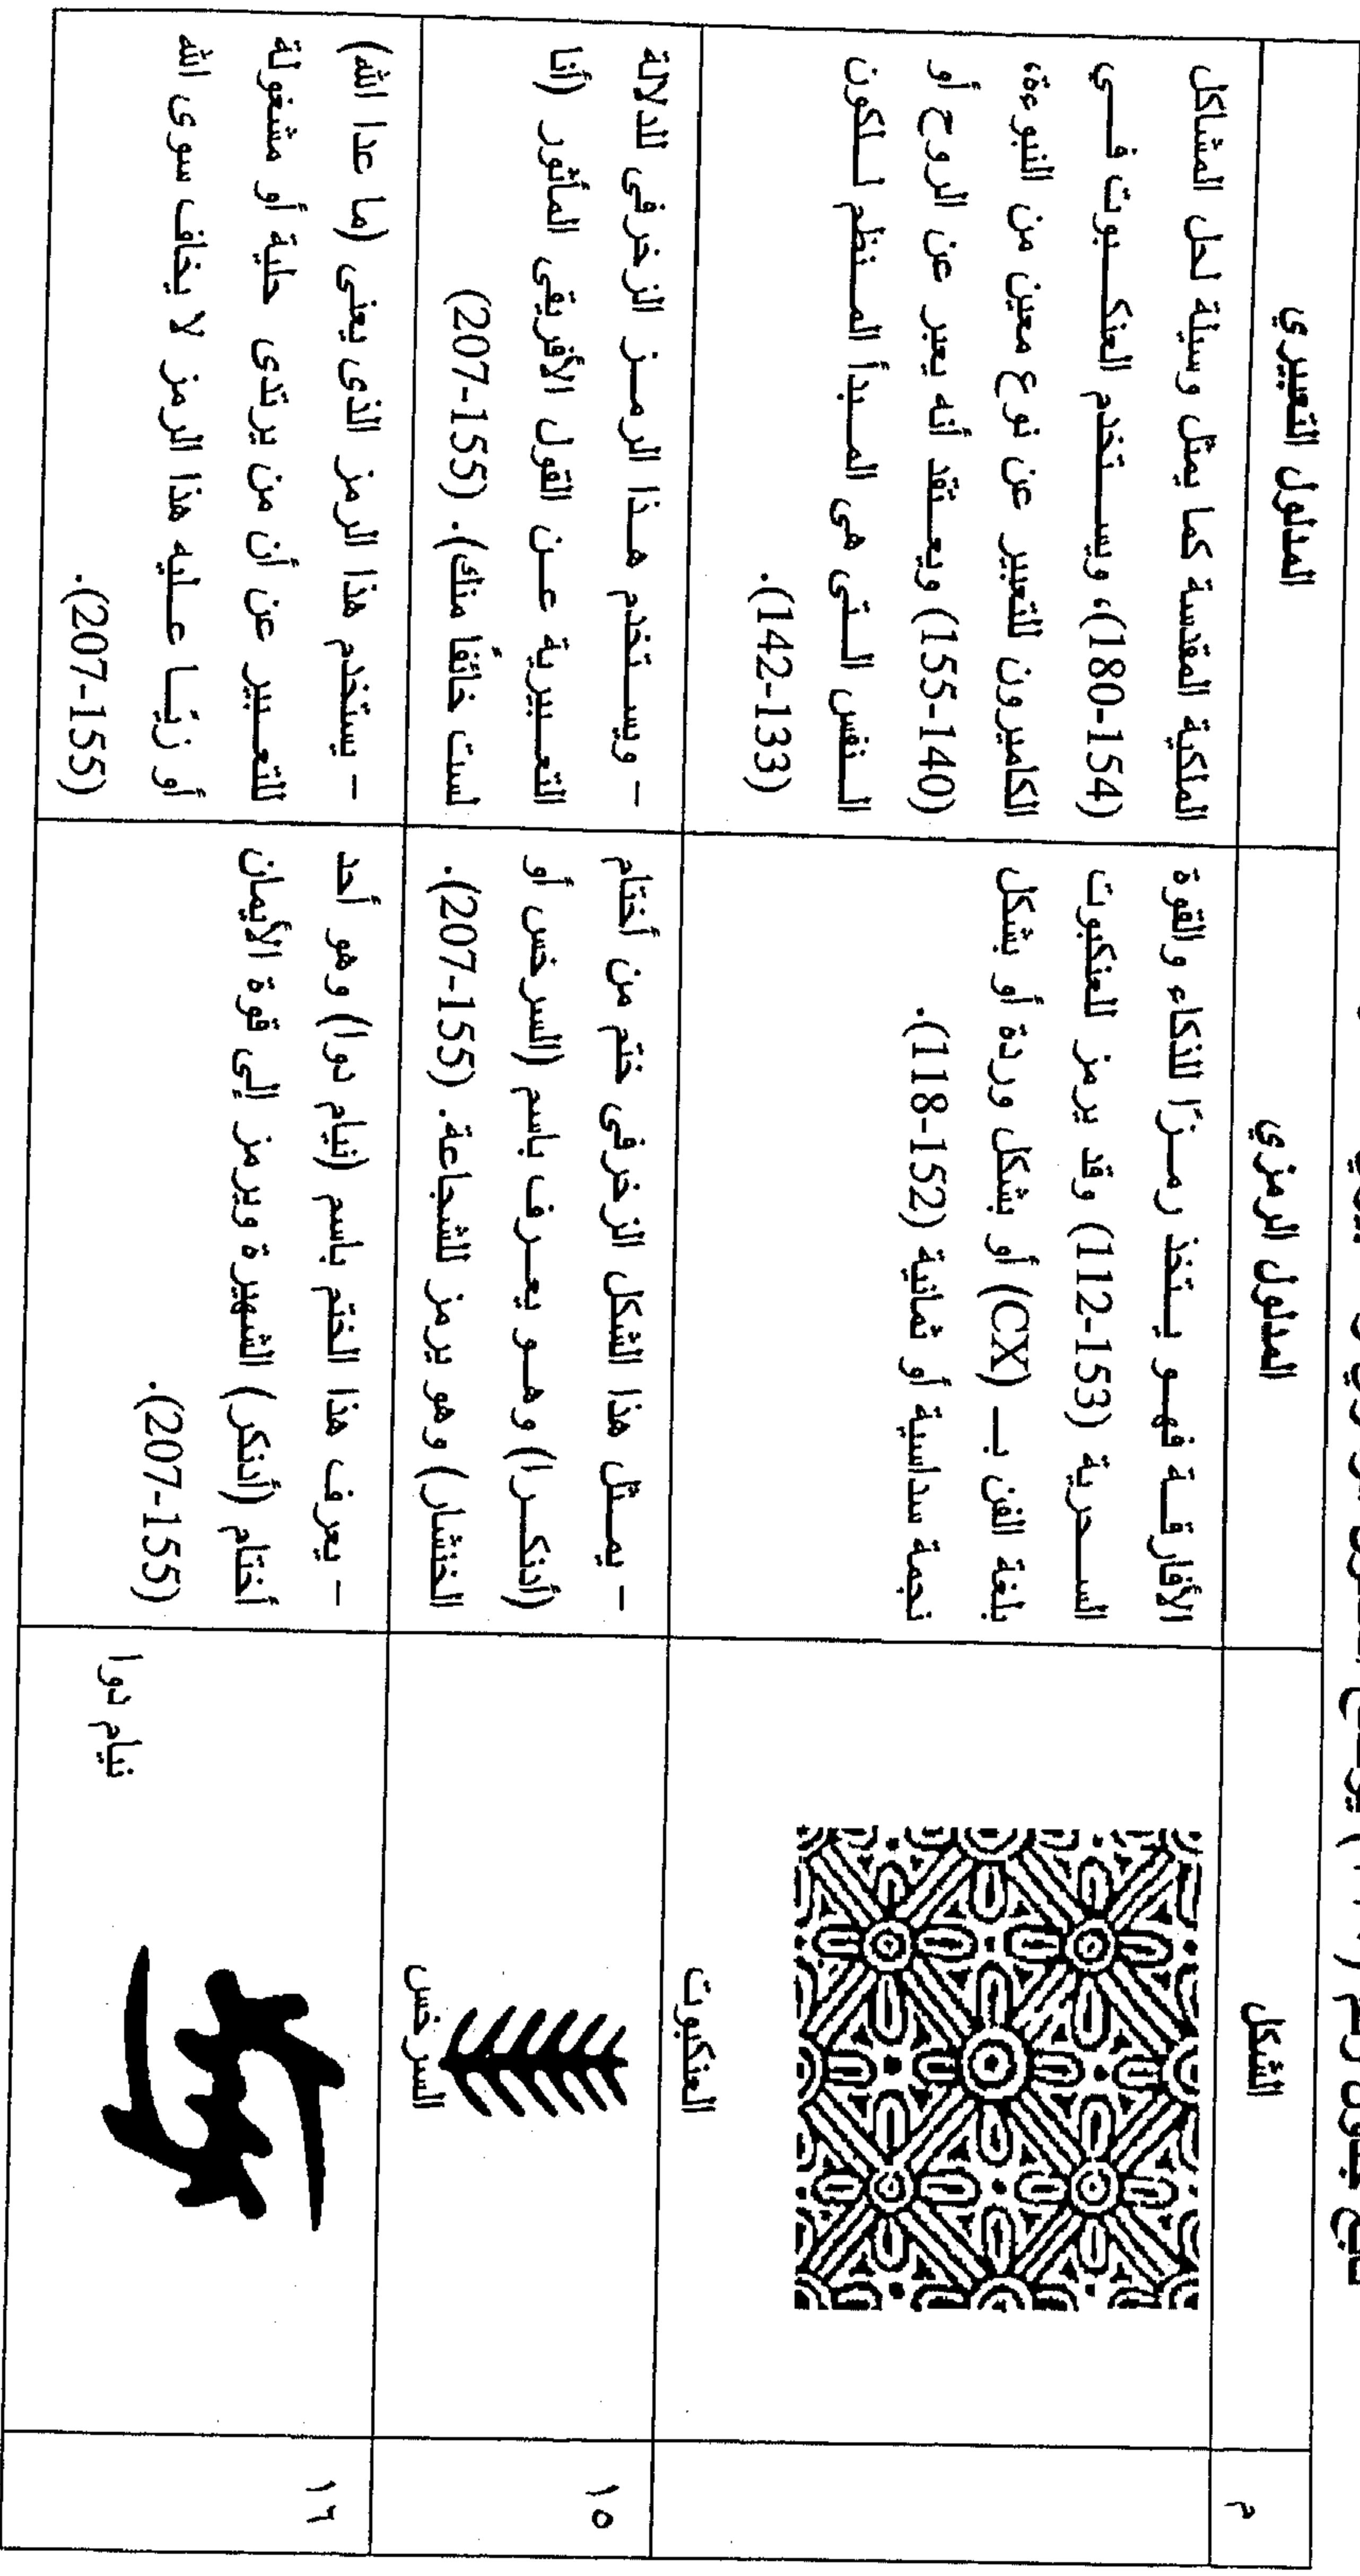 م
الشكل
المدلول الرمزي
المدلول التعبيري
العنكبوت
الأفارقة فهو يتخذ رمزًا للذكاء والقوة
السحرية (153-112) وقد يرمز للعنكبوت
بلغة الفن بـ (CX) أو بشكل وردة أو بشكل
نجمة سداسية أو ثمانية (152-118).
الملكية المقدسة كما يمثل وسيلة لحل المشاكل
(154-180)، ويستخدم العنكبوت في
الكاميرون للتعبير عن نوع معين من النبوءة،
(140-155) ويعتقد أنه يعبر عن الروح أو
النفس التى هى المبدأ المنظم لكون
(133-142).
١٥
السرخس
- يمثل هذا الشكل الزخرفى ختم من أختام
(أدنكرا) وهو يعرف باسم (السرخس أو
الخنشار) وهو يرمز للشجاعة. (155-207).
- ويستخدم هذا الرمز الزخرفى للدلالة
التعبيرية عن القول الأفريقى المأثور (أنا
لست خائفًا منك). (155-207)
١٦
نيام دوا
- يعرف هذا الختم باسم (نيام دوا) وهو أحد
أختام (أدنكر) الشهيرة ويرمز إلى قوة الأيمان
(155-207).
- يستخدم هذا الرمز الذى يعنى (ما عدا الله)
للتعبير عن أن من يرتدى حلية أو مشغولة
أو زيًا عليه هذا الرمز لا يخاف سوى الله
(155-207).